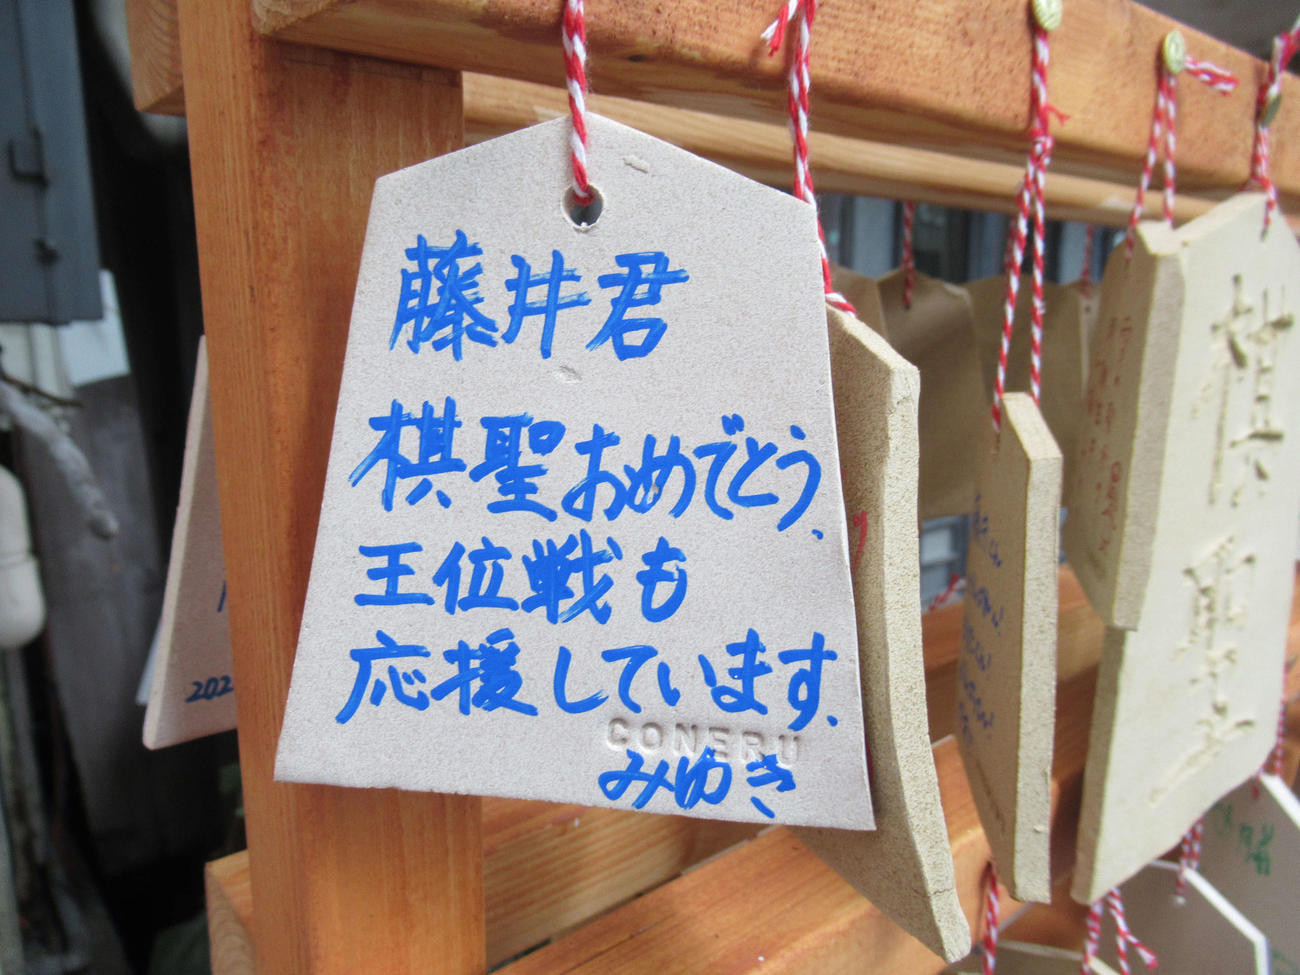 藤井君
棋聖おめでとう、
王位戦も
応援しています.
CONERU
みゆき
202